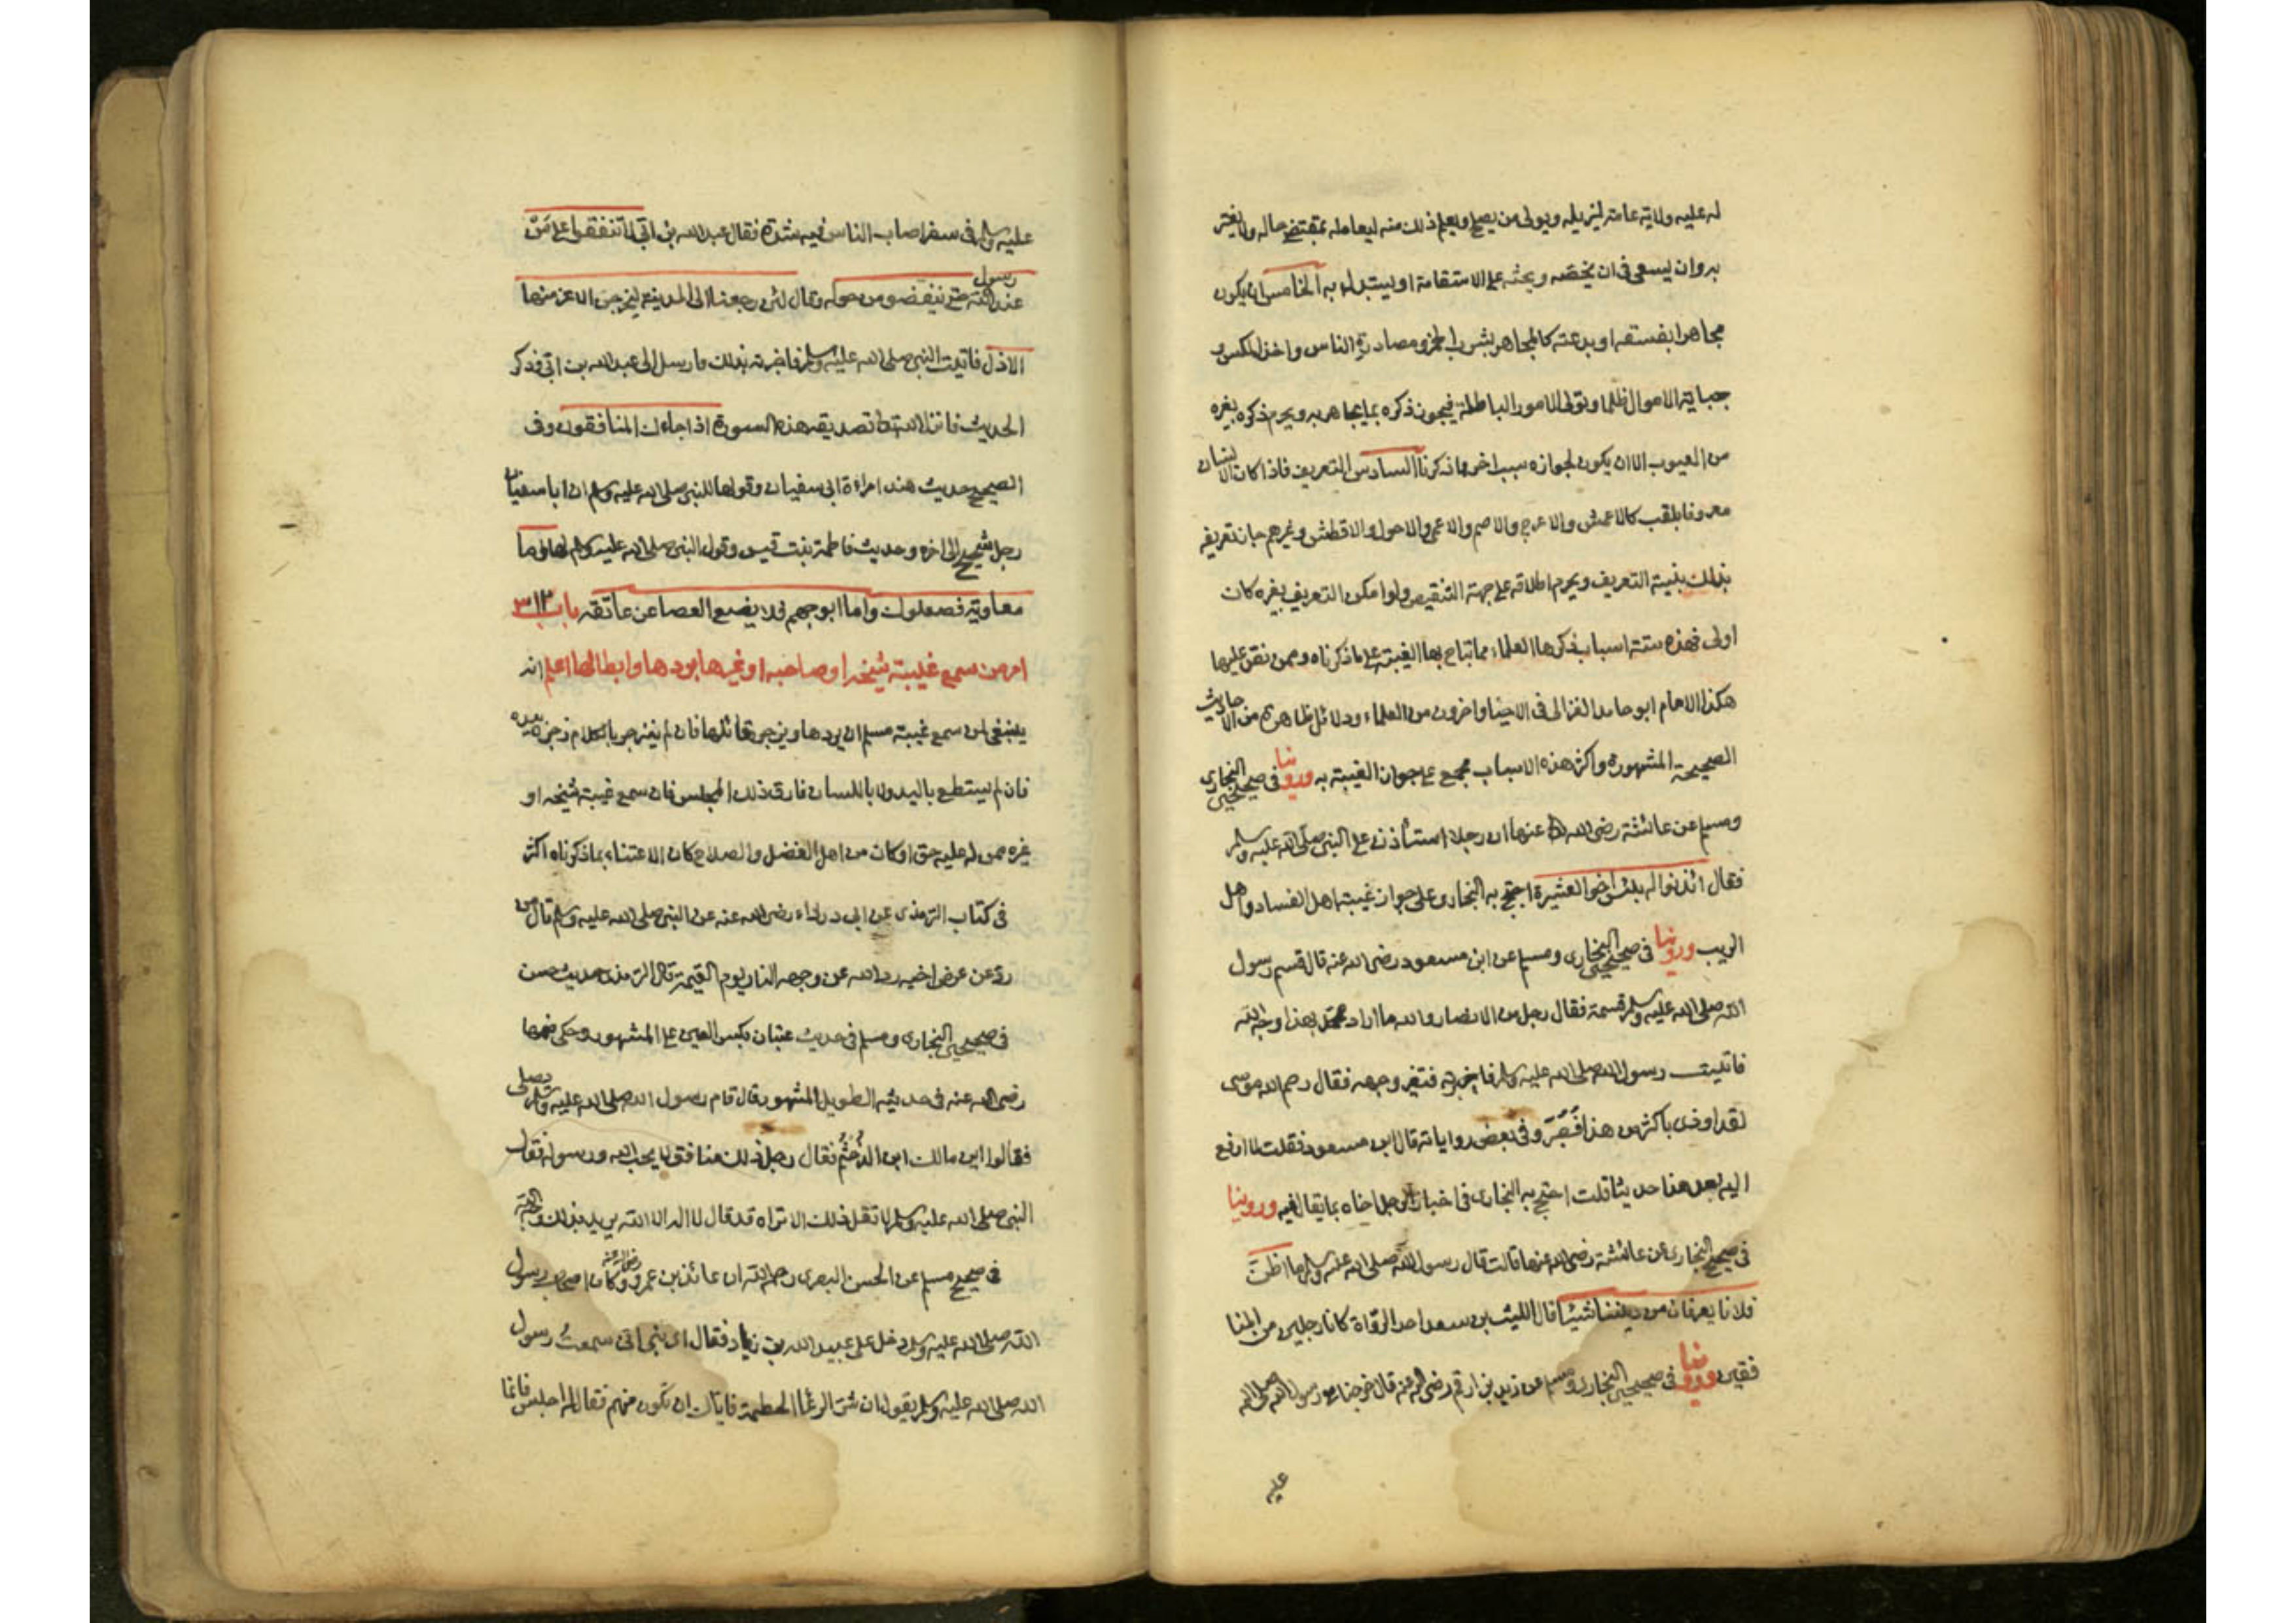 له عليه ولاية عامة ليزيله ويولى من يصلح ويعلم ذلك منه ليعامله بمقتضى حاله ولا يغتر
به وان يسعى فى ان يحثه على الاستقامة او يستبدل به الخامس ان يكون
مجاهرا بفسقه او بدعته كالمجاهر بشرب الخمر ومصادرة الناس واخذ المكس و
جباية الاموال ظلما وتولى الامور الباطلة فيجوز ذكره بما يجاهر به ويحرم ذكره بغيره
من العيوب الا ان يكون لجوازه سبب اخر مما ذكرنا السادس التعريف فاذا كان الانسان
معروفا بلقب كالاعمش والاعرج والاصم والاعمى والاحول والافطس وغيرهم جاز تعريفه
بذلك بنية التعريف ويحرم اطلاقه على جهة التنقيص ولو امكن التعريف بغيره كان
اولى فهذه ستة اسباب ذكرها العلماء مما تباح بها الغيبة على ما ذكرناه وممن نص عليها
هكذا الامام ابو حامد الغزالى فى الاحيا واخرون من العلماء ودلائل ظاهرة من الاحاديث
الصحيحة المشهورة واكثر هذه الاسباب مجمع على جواز الغيبة به وروينا فى صحيحى البخارى
ومسلم عن عائشة رضى الله عنها ان رجلا استأذن على النبى صلى الله عليه وسلم
فقال ائذنوا له بئس اخو العشيرة احتج به البخارى على جواز غيبة اهل الفساد واهل
الريب وروينا فى صحيحى البخارى ومسلم عن ابن مسعود رضى الله عنه قال قسم رسول
الله صلى الله عليه وسلم قسمة فقال رجل من الانصار والله ما اراد محمد بهذا وجه الله
فاتيت رسول الله صلى الله عليه وسلم فاخبرته فتغير وجهه فقال رحم الله موسى
لقد اوذى باكثر من هذا فصبر وفى بعض رواياته قال ابن مسعود فقلت لا ارفع
اليه بعد هذا حديثا قلت احتج به البخارى فى اخبار الرجل اخاه بما يقال فيه وروينا
فى صحيح البخارى عن عائشة رضى الله عنها قالت قال رسول الله صلى الله عليه وسلم ما اظن
فلانا يعرفان من ديننا شيئا قال الليث بن سعد احد الرواة كانا رجلين من المنا
فقين وروينا فى صحيحى البخارى ومسلم عن زيد بن ارقم رضى الله عنه قال خرجنا مع رسول الله صلى الله
عليه
عليه وسلم فى سفر اصاب الناس فيه شدة فقال عبد الله بن ابى لا تنفقوا على من
عند رسول الله حتى ينفضوا من حوله وقال لئن رجعنا الى المدينة ليخرجن الاعز منها
الاذل فاتيت النبى صلى الله عليه وسلم فاخبرته بذلك فارسل الى عبد الله بن ابى فذكر
الحديث فانزل الله تعالى تصديقه هذه السورة اذا جاءك المنافقون وفى
الصحيح حديث هند امراءة ابى سفيان وقولها للنبى صلى الله عليه وسلم ان ابا سفيان
رجل شحيح الى اخره وحديث فاطمة بنت قيس وقول النبى صلى الله عليه وسلم لها اما
معاوية فصعلوك واما ابو جهم فلا يضع العصا عن عاتقه باب ٣١٢
امر من سمع غيبة شيخه او صاحبه او غيرها بردها وابطالها اعلم انه
ينبغى لمن سمع غيبة مسلم ان يردها ويزجر قائلها فان لم ينزجر بالكلام زجره بيده
فان لم يستطيع باليد ولا باللسان فارق ذلك المجلس فان سمع غيبة شيخه او
غيره ممن له عليه حق او كان من اهل الفضل والصلاح كان الاعتناء بما ذكرناه اكثر
فى كتاب الترمذى عن ابى درداء رضى الله عنه عن النبى صلى الله عليه وسلم قال من
رد عن عرض اخيه رد الله عن وجهه النار يوم القيمة قال الترمذى حديث حسن
فى صحيحى البخارى ومسلم فى حديث عتبان بكسر العين على المشهور وحكى ضمها
رضى الله عنه فى حديثه الطويل المشهور قال قام رسول الله صلى الله عليه وسلم يصلى
فقالوا اين مالك ابن الدخشم فقال رجل ذلك منافق لا يحب الله ورسوله فقال
النبى صلى الله عليه وسلم لا تقل ذلك الا تراه قد قال لا اله الا الله يريد بذلك وجه الله
فى صحيح مسلم عن الحسن البصرى رحمه الله ان عائذ بن عمرو رضى الله عنه وكان من اصحاب رسول
الله صلى الله عليه وسلم دخل على عبيد الله بن زياد فقال اى بنى انى سمعت رسول
الله صلى الله عليه وسلم يقول ان شر الرعا الحطمة فاياك ان تكون منهم فقال له اجلس فانما